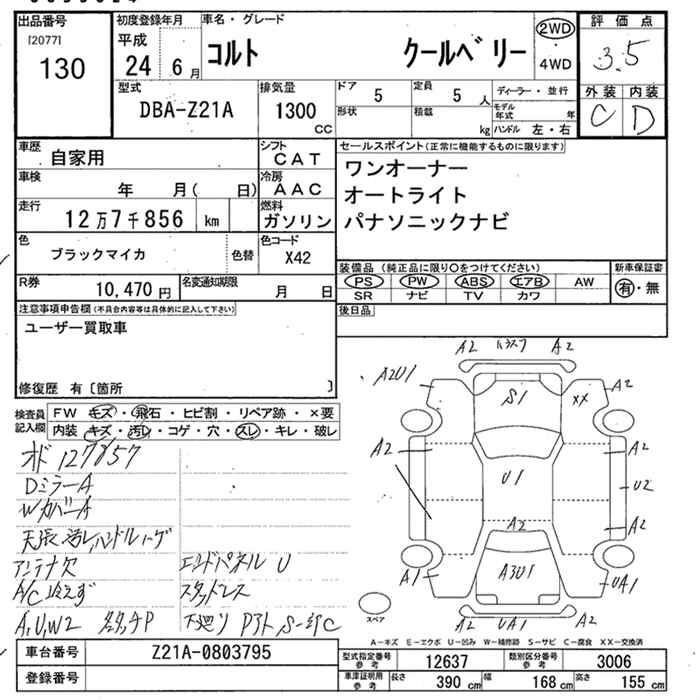 出品番号
[2077]
130
初度登録年月
平成
24 6月
車名・グレード
コルト クールベリー
2WD
4WD
評価点
3.5
外装 内装
C D
型式
DBA-Z21A
排気量
1300
CC
ドア
5
定員
5 人
形状
積載
kg
ディーラー・並行
モデル年式
年
ハンドル 左・右
車歴
自家用
シフト
CAT
車検
年 月( 日)
冷房
AAC
走行
12万7千856 km
燃料
ガソリン
色
ブラックマイカ
色替
色コード
X42
R券
10,470 円
名変通知期限
月 日
セールスポイント(正常に機能するものに限ります)
ワンオーナー
オートライト
パナソニックナビ
装備品(純正品に限り○をつけてください)
PS PW ABS エアB AW
SR ナビ TV カワ
新車保証書
有・無
後日品
注意事項申告欄(不具合内容等は具体的に記入して下さい)
ユーザー買取車
修復歴 有〔箇所 〕
検査員
記入欄
FW キズ・飛石・ヒビ割・リペア跡・×要
内装 キズ・汚レ・コゲ・穴・スレ・キレ・破レ
オド 127857
DミラーA
WカバーA
アンテナ欠
エンドパネル U
A/C冷えず
スタッドレス
A,U,W2
A2 A2
A2U1
S1
XX
A2
A2
A2
U1
U2
A2
A2
A1
A3U1
UA1
A2 UA1 A2
スペア
A-キズ E-エクボ U-凹み W-補修跡 S-サビ C-腐食 XX-交換済
車台番号
Z21A-0803795
登録番号
型式指定番号
参考
12637
類別区分番号
参考
3006
車庫証明用
参考
長さ 390 cm 幅 168 cm 高さ 155 cm